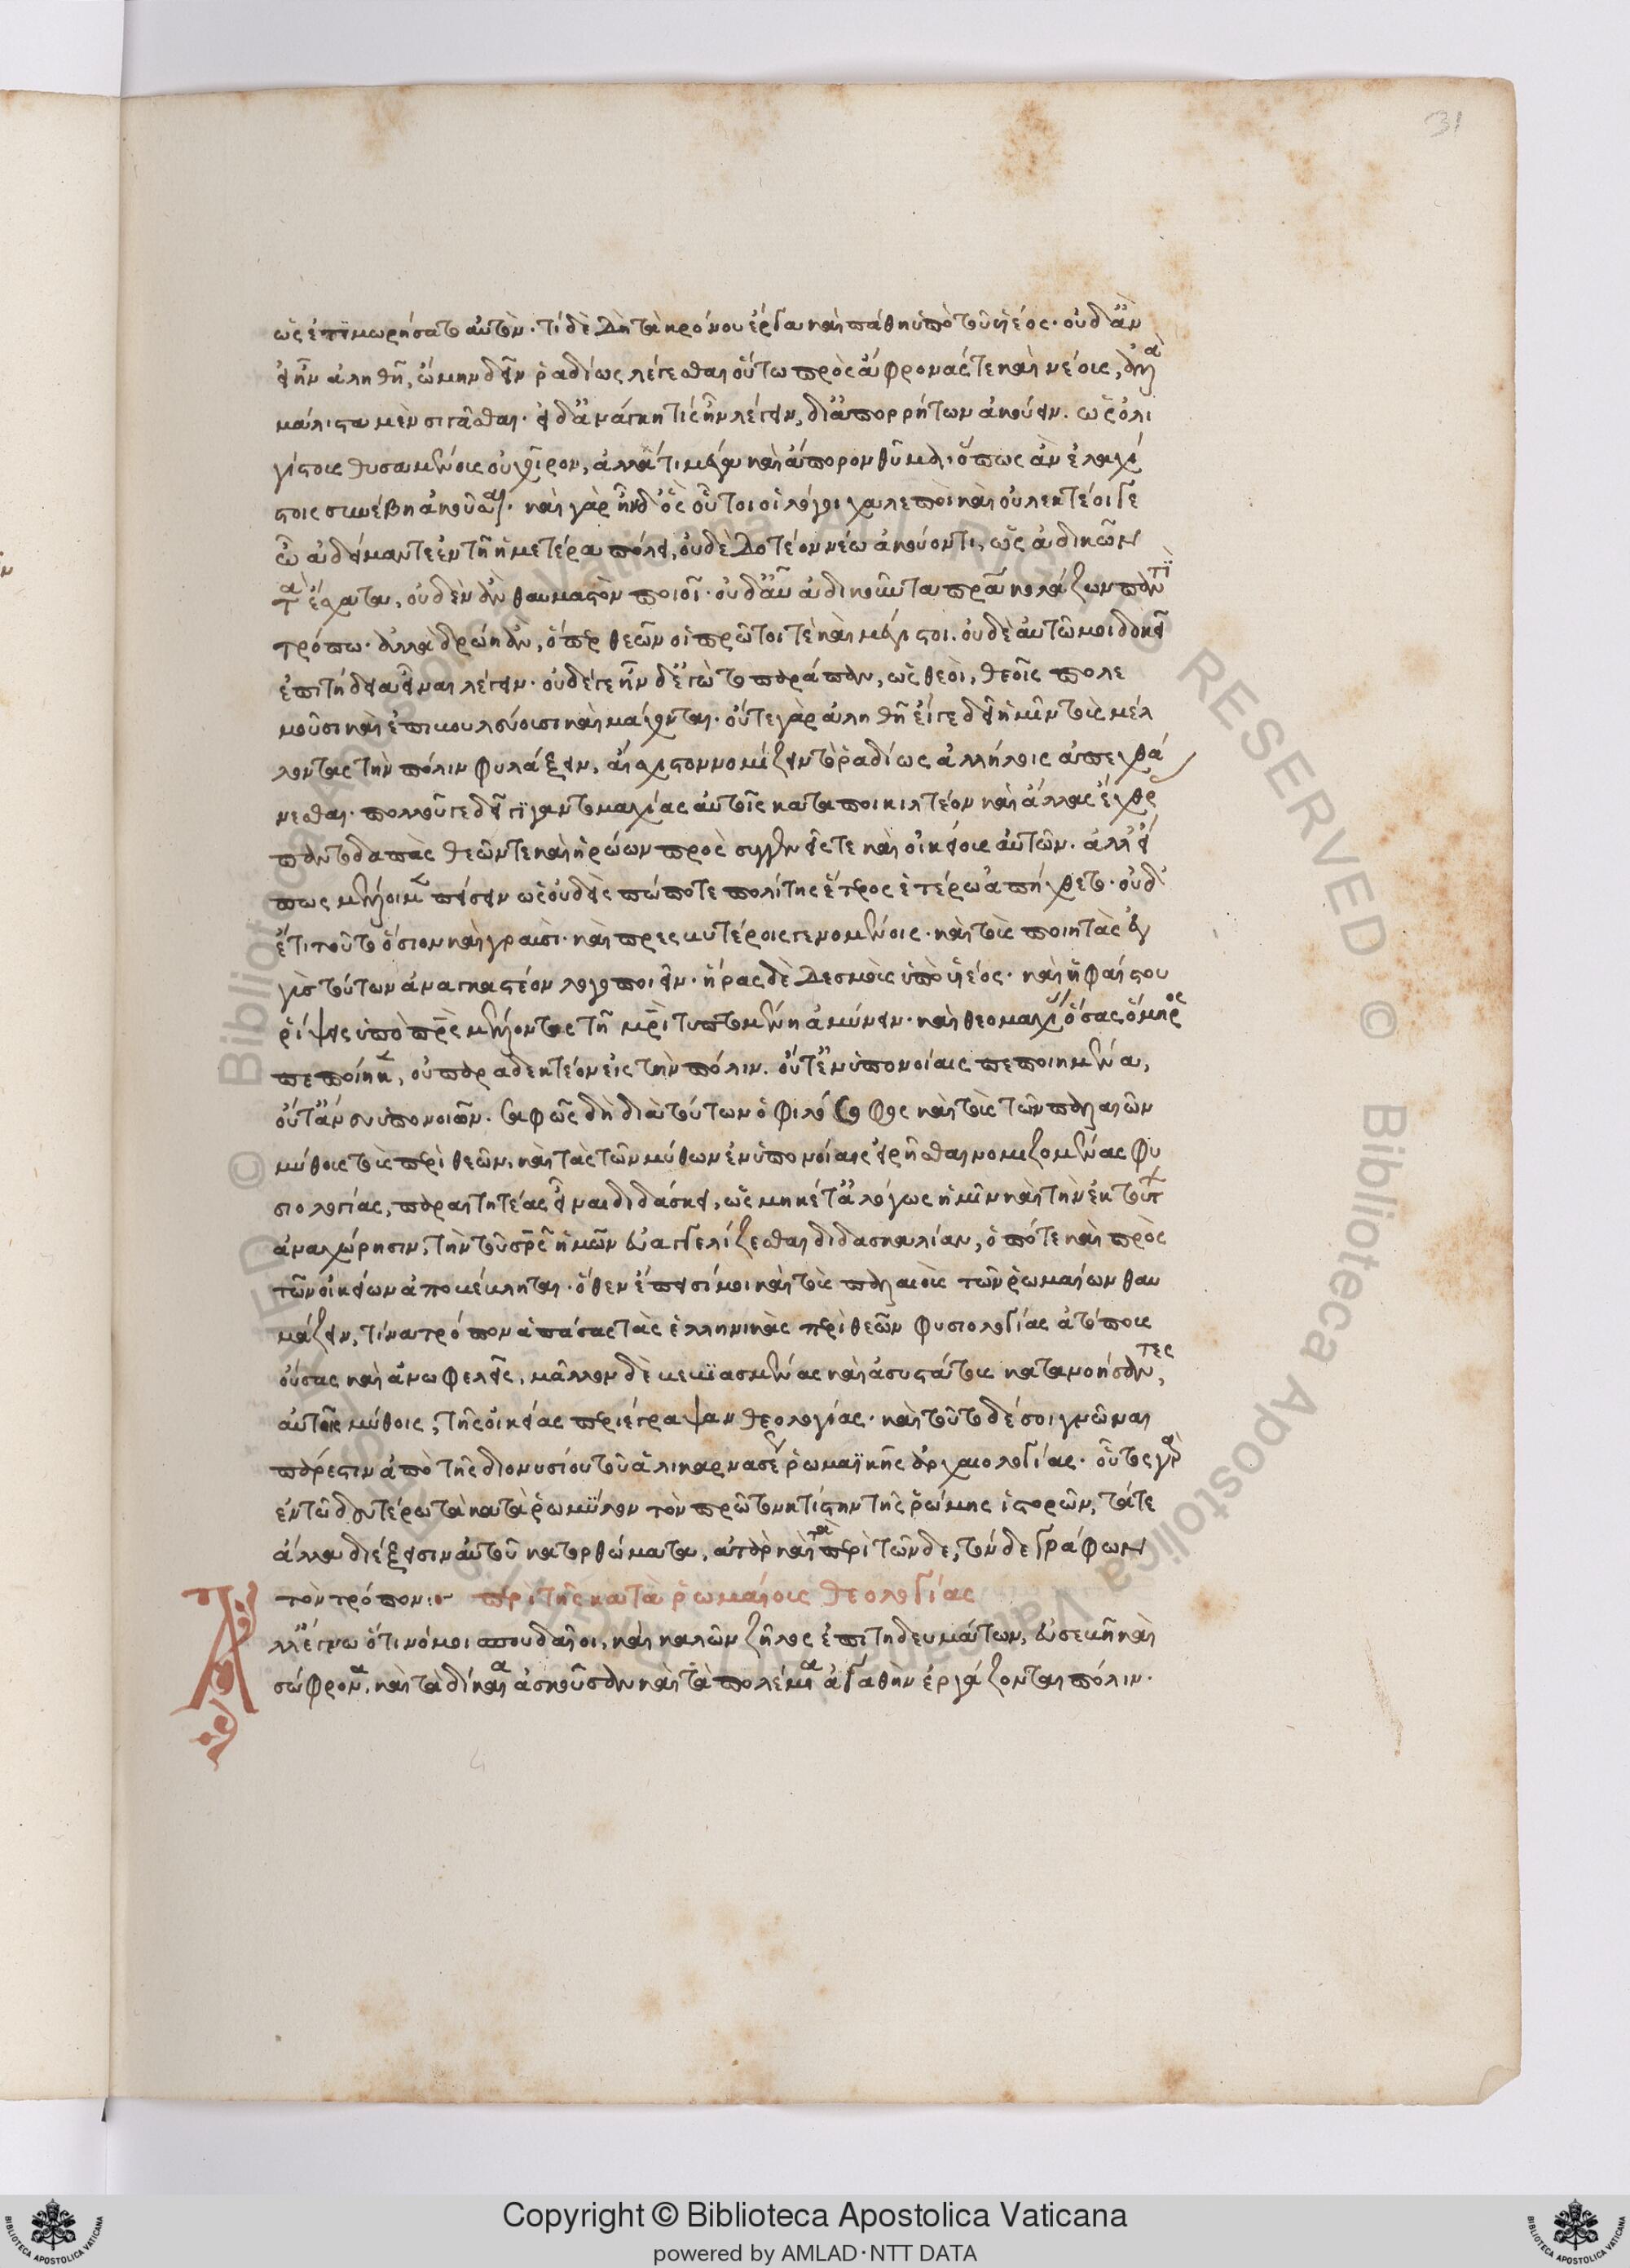 31
ὡς ἐτιμωρήσατο αὐτόν· τὶ δὲ δὴ τὰ κρόνου ἔργα καὶ πάθη ὑπὸ τοῦ υἱέος· οὐδ' ἂν
εἰ ἦν ἀληθῆ, ᾤμην δεῖν ῥαδίως λέγεσθαι οὕτω πρὸς ἄφρονάς τε καὶ νέοις, ἀλλὰ
μάλιστα μὲν σιγᾶσθαι· εἰ δ' ἀνάγκη τίς ἦν λέγειν, δι' ἀπορρήτων ἀκούειν. ὡς ὀλι
γίστοις θυσαμένοις οὐ χοῖρον, ἀλλά τι μέγα καὶ ἄπορον θῦμα· ὅπως ἂν ἐλαχί
στοις συνέβη ἀκοῦσαι. καὶ γὰρ ἦν δ' ὃς οὗτοι οἱ λόγοι χαλεποὶ καὶ οὐ λεκτέοι γε
ὦ ἀδείμαντε ἐν τῇ ἡμετέρα πόλει, οὐδὲ λοτέον νέω ἀκούοντι, ὡς ἀδικῶν
τὰ ἔσχατα, οὐδὲν ἂν θαυμαστὸν ποιοῖ· οὐδ' αὖ ἀδικοῦντα πρα κολάζων παντὶ
τρόπω· ἀλλὰ δρώη ἂν, ὅπερ θεῶν οἱ πρῶτοί τε καὶ μέγιστοι. οὐδὲ αὐτῶ μοι δοκεῖ
ἐπιτήδεια εἶναι λέγειν· οὐδέ γε ἦν δ' ἐγὼ τὸ παράπαν, ὡς θεοὶ, θεοῖς πολε
μοῦσι καὶ ἐπιβουλεύουσι καὶ μάχονται· οὔτε γὰρ ἀληθῆ εἴ γε δεῖ ἡμῖν τοὺς μέλ
λοντας τὴν πόλιν φυλάξειν, αἴσχιστον νομίζειν τὸ ῥαδίως ἀλλήλοις ἀπεχθά
νεσθαι· πολλοῦ γε δεῖ γιγαντομαχίας αὐτοῖς καταποικιλτέον καὶ ἄλλας ἔχθρ
παντοδαπὰς θεῶν τε καὶ ἡρώων πρὸς συγγενεῖς τε καὶ οἰκείους αὐτῶν. ἀλλ' εἴ
πως μέλλοιμεν πείσειν ὡς οὐδεὶς πώποτε πολίτης ἕτερος ἑτέρω ἀπήχθετο· οὐδ'
ἔτι τοῦτο ὅσιον καὶ γραισὶ· καὶ πρεσβυτέροις γενομένοις· καὶ τοὺς ποιητὰς ἐγ
γὺς τούτων ἀναγκαστέον λογοποιεῖν· ἥρας δὲ δεσμοὺς ὑπὸ υἱέος· καὶ ἡφαίστου
ῥίψεις ὑπὸ πρς μέλλοντος τῇ μρὶ τυπτομένη ἀμύνειν· καὶ θεομαχίας ὅσας ὅμηρος
πεποίηκεν, οὐ παραδεκτέον εἰς τὴν πόλιν. οὔτ' ἐν ὑπονοίαις πεποιημένα,
οὔτ' ἄνευ ὑπονοιῶν. σαφῶς δὴ διὰ τούτων ὁ φιλόσοφος καὶ τοὺς τῶν παλαιῶν
μύθους τοὺς περὶ θεῶν, καὶ τὰς τῶν μύθων ἐν ὑπονοίαις εἰρῆσθαι νομιζομένας φυ
σιολογίας, παραιτητέας εἶναι διδάσκει, ὡς μηκέτ' ἀλόγως ἡμῖν καὶ τὴν ἐκ τούτ
ἀναχώρησιν, τὴν τοῦ σρς ἡμῶν εὐαγγελίζεσθαι διδασκαλίαν, ὁπότε καὶ πρὸς
τῶν οἰκείων ἀποκέκληται· ὅθεν ἔπεισί μοι καὶ τοὺς παλαιοὺς τῶν ῥωμαίων θαυ
μάζειν, τίνα τρόπον ἁπάσας τὰς ἑλληνικὰς περὶ θεῶν φυσιολογίας ἀτόπους
οὔσας καὶ ἀνωφελεῖς, μᾶλλον δὲ βεβιασμένας καὶ ἀσυστάτους κατανοήσαντες,
αὐτοῖς μύθοις, τῆς οἰκείας περιέγραψαν θεολογίας· καὶ τοῦτο δέ σοι γνῶναι
πάρεστιν ἀπὸ τῆς διονυσίου τοῦ ἁλικαρνασέως ῥωμαϊκῆς ἀρχαιολογίας· οὗτος γὰρ
ἐν τῶ δευτέρω τὰ κατὰ ῥωμύλον τὸν πρῶτον κτίστην τῆς ῥώμης ἱστορῶν, τά τε
ἄλλα διέξεισιν αὐτοῦ κατορθώματα, ἀτὰρ καὶ τὰ περὶ τῶνδε, τόνδε γράφων
τὸν τρόπον:· περὶ τῆς κατὰ ῥωμαίους θεολογίας
Ἀλλ' ἔγνω ὅτι νόμοι σπουδαῖοι, καὶ καλῶν ζῆλος ἐπιτηδευμάτων, εὐσεβῆ καὶ
σώφρονα, καὶ τὰ δίκαια ἀσκοῦσαν καὶ τὰ πολέμια ἀγαθὴν ἐργάζονται πόλιν.
Copyright © Biblioteca Apostolica Vaticana
powered by AMLAD·NTT DATA